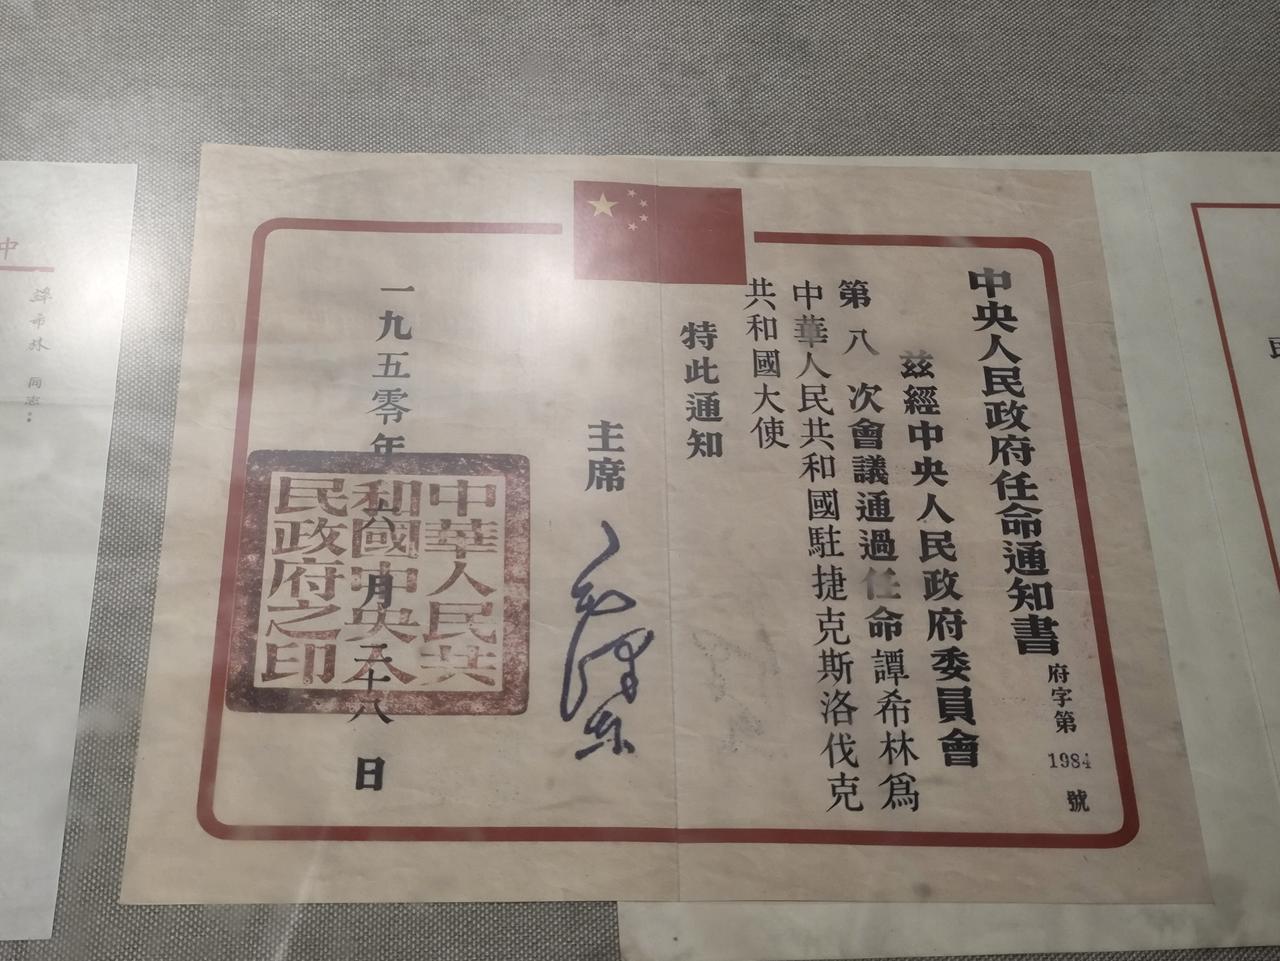 中央人民政府任命通知書
府字第1984號
兹經中央人民政府委員會
第八次會議通過任命譚希林爲
中華人民共和國駐捷克斯洛伐克
共和國大使
特此通知
主席
毛澤東
一九五零年六月二十八日
中華人民共
和國中央人
民政府之印
中
譚希林同志：